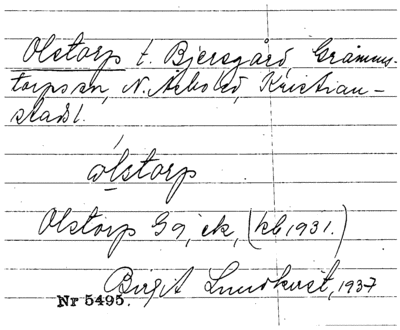 Olstorp t. Bjersgård Grámms-
torps sn, N. Åsbo hd, Kristian-
stads l.
ωlstorp
Olstorp Gg, ek, (kb 1931.)
Birgit Lundkvist, 1937
Nr 5495.